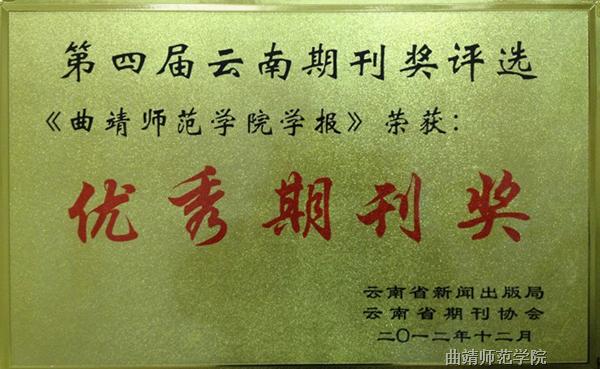 第四届云南期刊奖评选
《曲靖师范学院学报》荣获：
优秀期刊奖
云南省新闻出版局
云南省期刊协会
二〇一二年十二月
曲靖师范学院